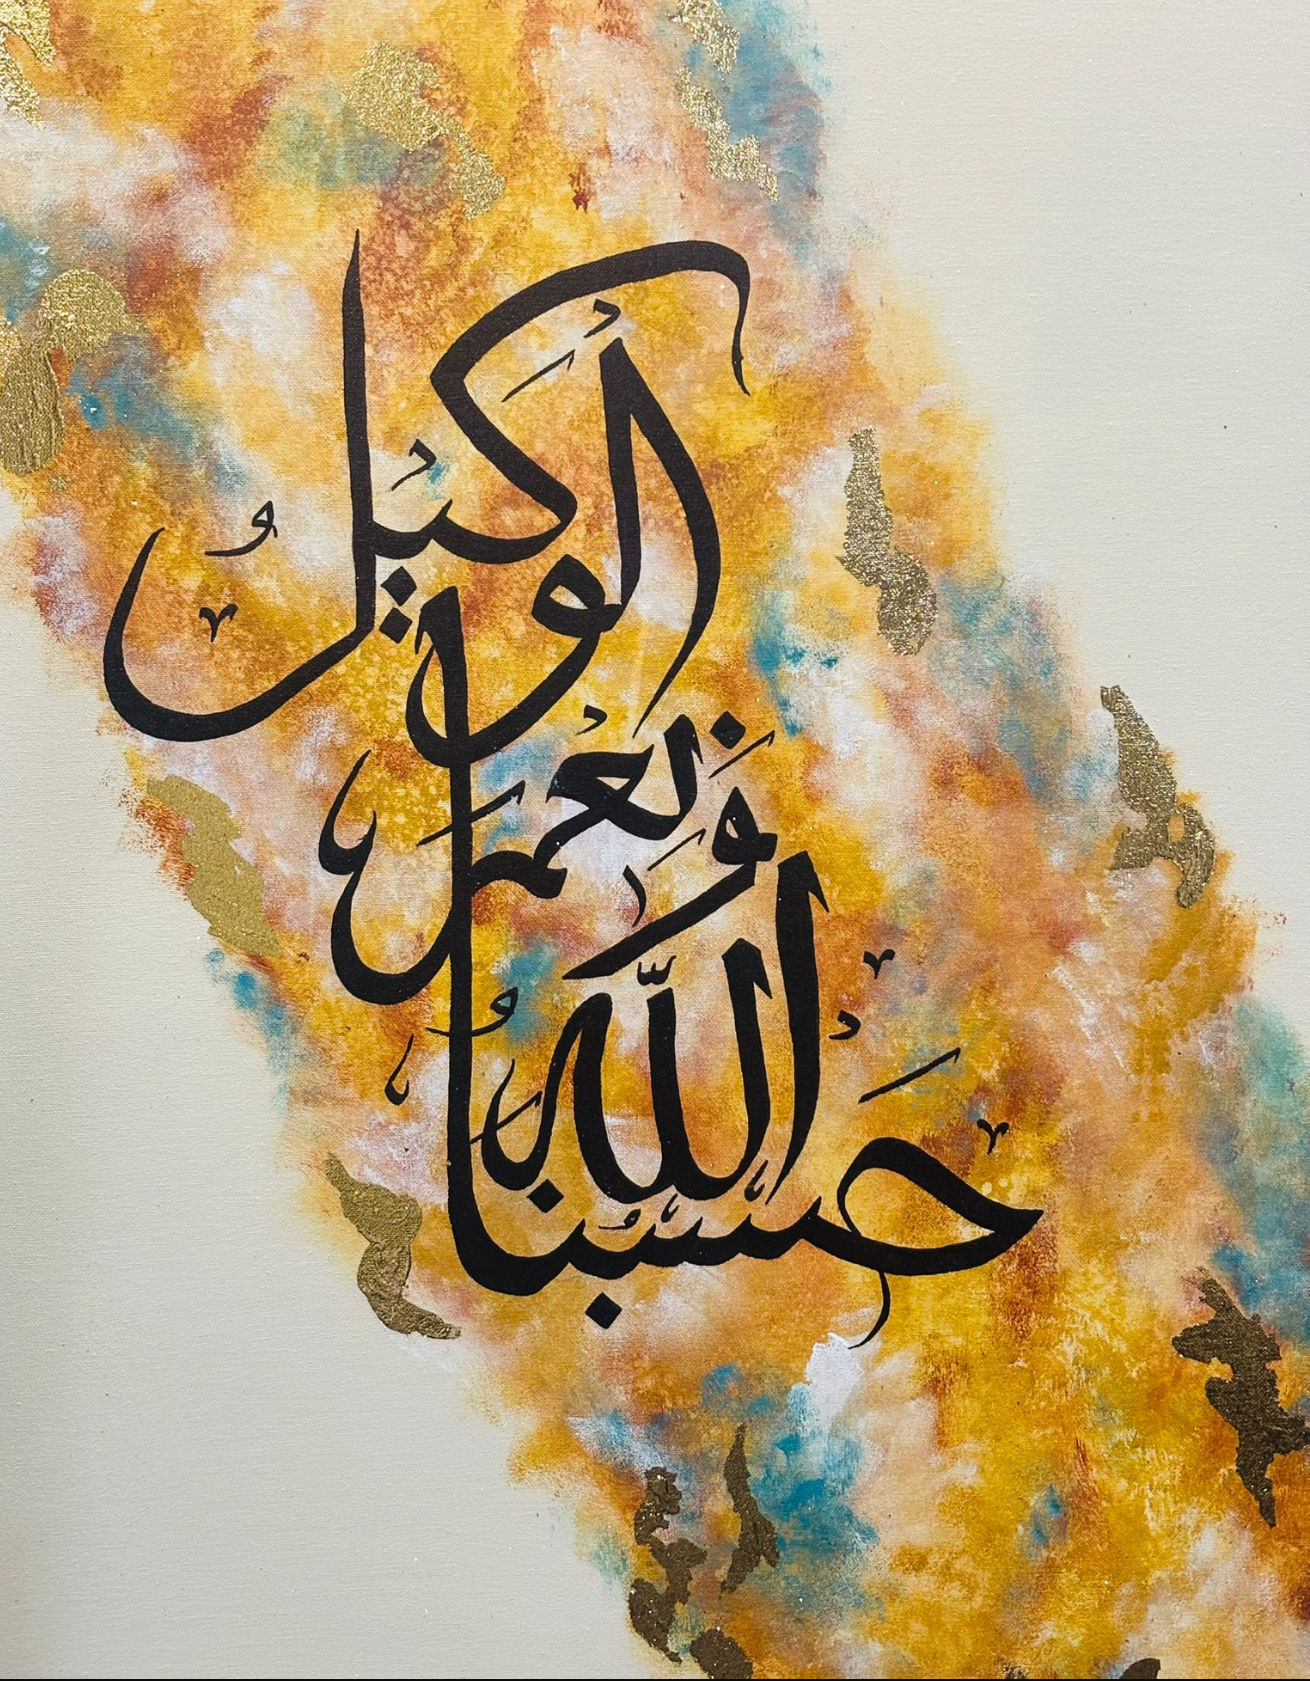 حَسْبُنَا اللَّهُ
وَنِعْمَ
الْوَكِيلُ